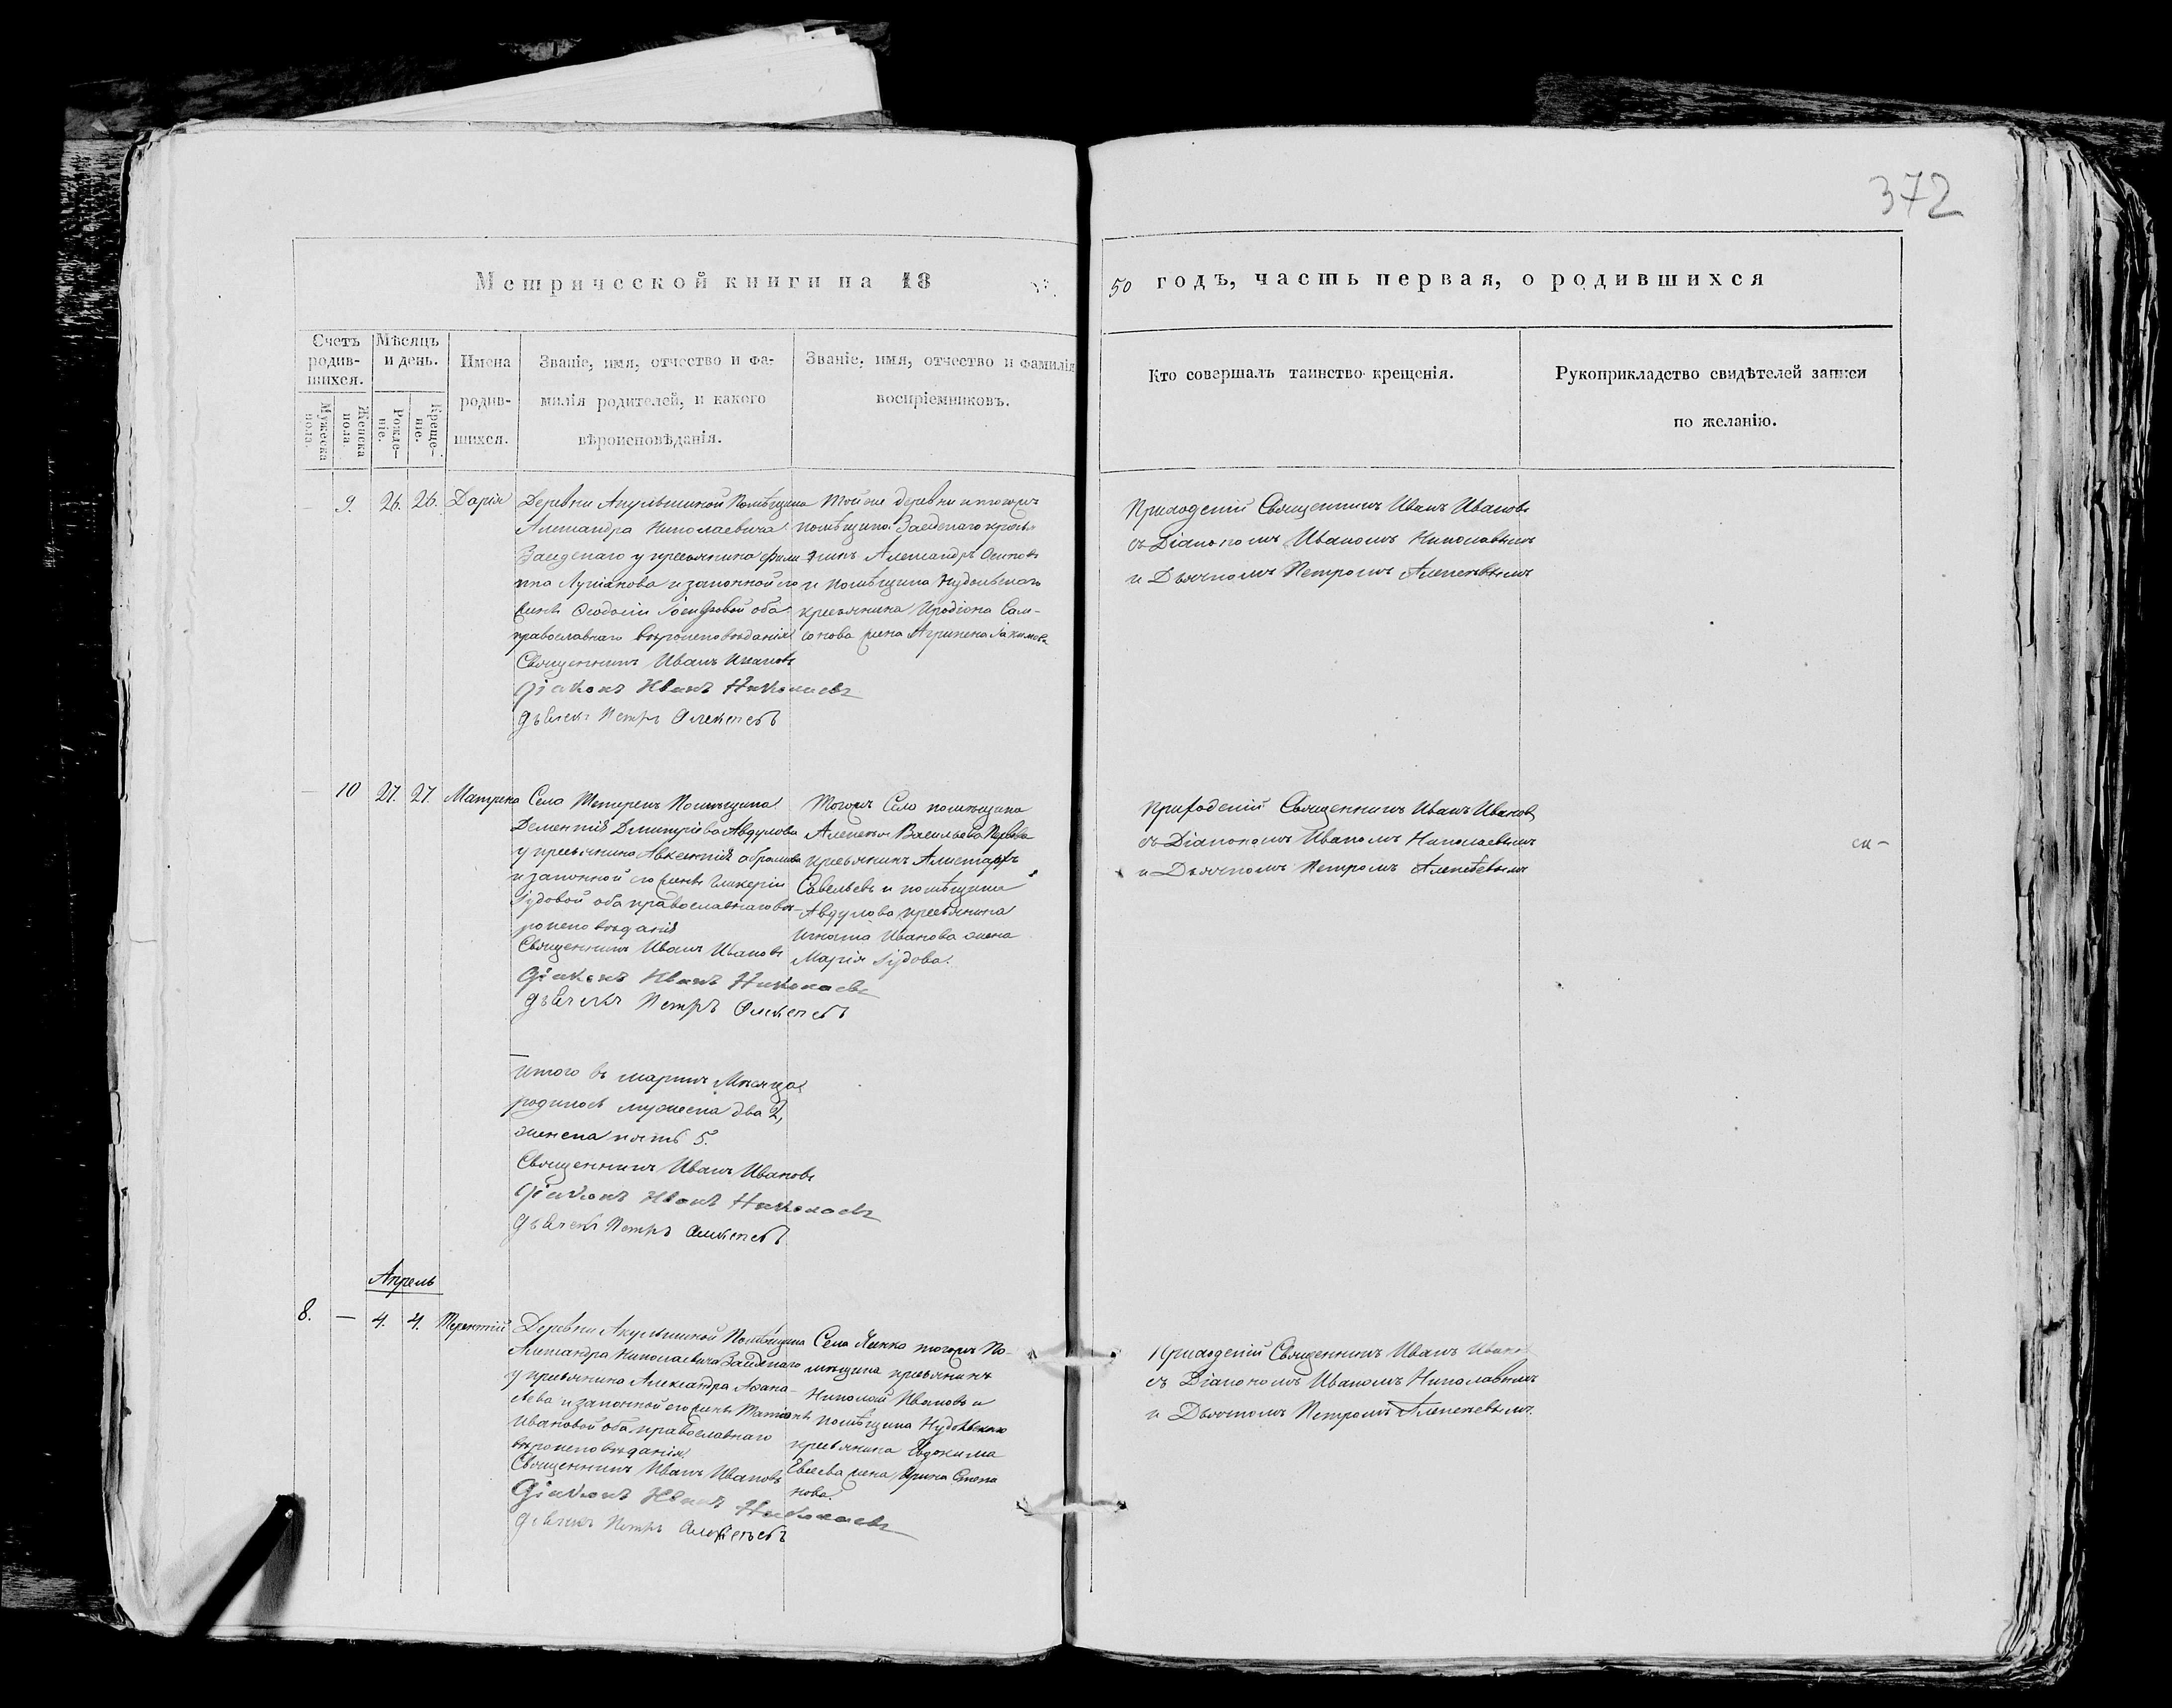 372
Метрической книги на 18
50 годъ, часть первая, о родившихся
Счетъ родив-шихся.
Мужеска пола.
Женска пола.
Мѣсяцъ и день.
Рожде-ніе.
Креще-ніе.
Имена родив-шихся.
Званіе, имя, отчество и фа-
милія родителей, и какого
вѣроисповѣданія.
Званіе, имя, отчество и фамилія
воспріемниковъ.
Кто совершалъ таинство крещенія.
Рукоприкладство свидѣтелей записи
по желанію.
9. 26. 26. Дарія
Деревни Помѣщика
Александра Николаевича
у крестьянина Фили
ппа Лукіанова и законной его
жены Ѳеодосіи оба
православнаго вѣроисповѣданія
Священникъ Иванъ Ивановъ
Діаконъ Иванъ Николаевъ
дьячекъ Петръ Алексѣевъ
Той же деревни и тогожъ
помѣщика кресть
янинъ Александръ Осиповъ
и помѣщика
крестьянина Иродіона Сам-
сонова жена Агрипена Іакимова
Приходскій Священникъ Иванъ Ивановъ
съ Діакономъ Иваномъ Николаевымъ
и Дьячкомъ Петромъ Алексѣевымъ
10 27. 27. Матрена
Села Помѣщика
Дементія Дмитріева Авдулова
у крестьянина Авксентія Абрамова
и законной его жены Гликеріи
Іудовой оба православнаго вѣ-
роисповѣданія
Священникъ Иванъ Ивановъ
Діаконъ Иванъ Николаевъ
дьячекъ Петръ Алексѣевъ
Тогожъ Села помѣщика
Алексея Васильева
крестьянинъ Алистархъ
Савельевъ и помѣщика
Авдулова крестьянина
Игната Иванова жена
Марія Іудова.
Приходскій Священникъ Иванъ Ивановъ
съ Діакономъ Иваномъ Николаевымъ
и Дьячкомъ Петромъ Алексѣевымъ
Итого въ мартѣ Мѣсяца
родилось мужеска два 2,
женска пять 5.
Священникъ Иванъ Ивановъ
Діаконъ Иванъ Николаевъ
дьячекъ Петръ Алексѣевъ
Апрель
8. — 4. 4. Терентій
Деревни Помѣщика
Александра Николаевича
у крестьянина Александра Афана-
сьева и законной его жены
Ивановой оба православнаго
вѣроисповѣданія.
Священникъ Иванъ Ивановъ
Діаконъ Иванъ Николаевъ
дьячекъ Петръ Алексѣевъ
Села тогожъ По-
мѣщика крестьянинъ
Николай Ивановъ и
помѣщика
крестьянина Евдокима
Евсѣева жена Ирина Степа
нова.
Приходскій Священникъ Иванъ Ивано
съ Діакономъ Иваномъ Николаевымъ
и Дьячкомъ Петромъ Алексѣевымъ.